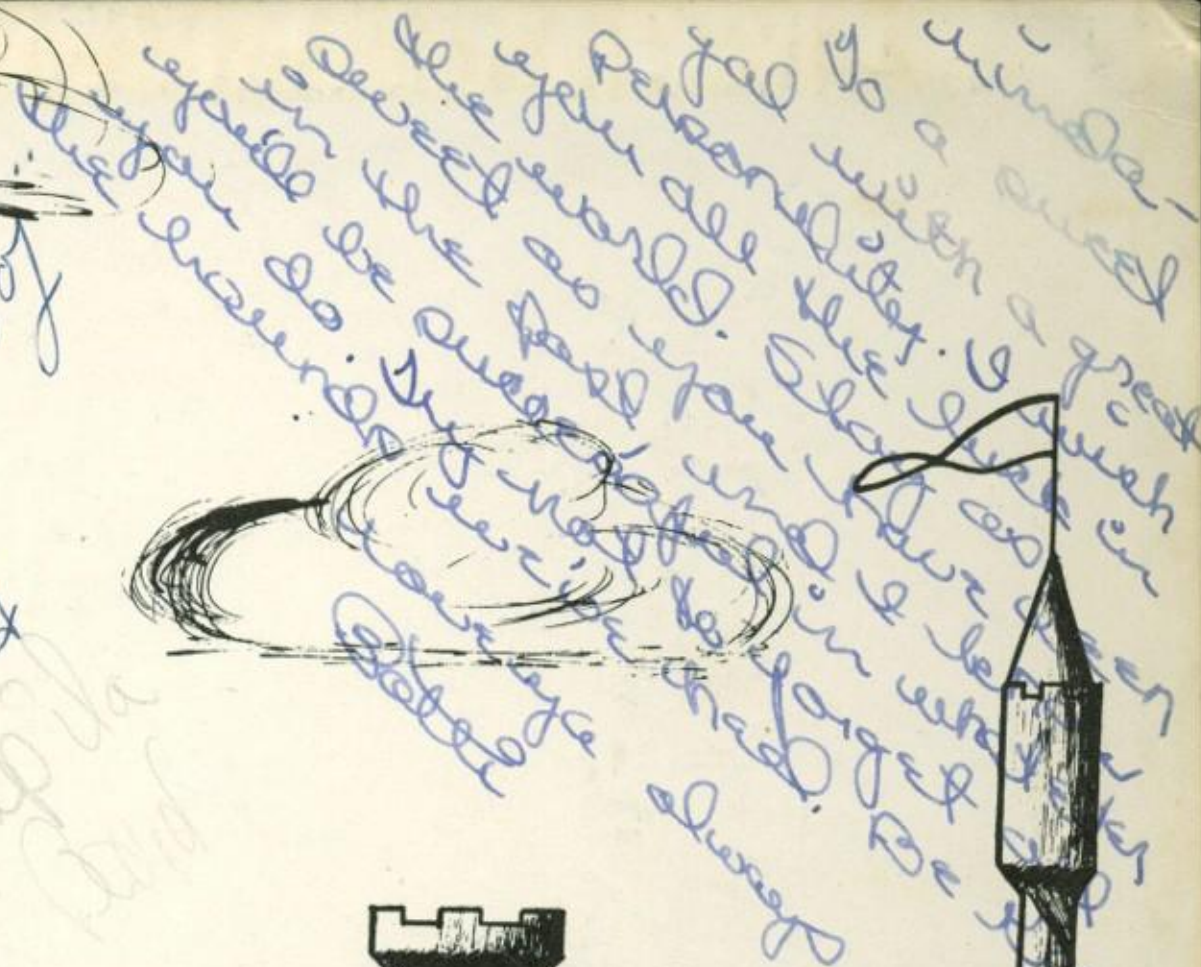 Linda-
To a sweet
gal with a great
Personality. I wish
you all the luck in
the world. Stay as
sweet as you have been
in the past and I
you'll be successful in whatever
you do. Try not to forget all
the
we've had. Be
always
Patti